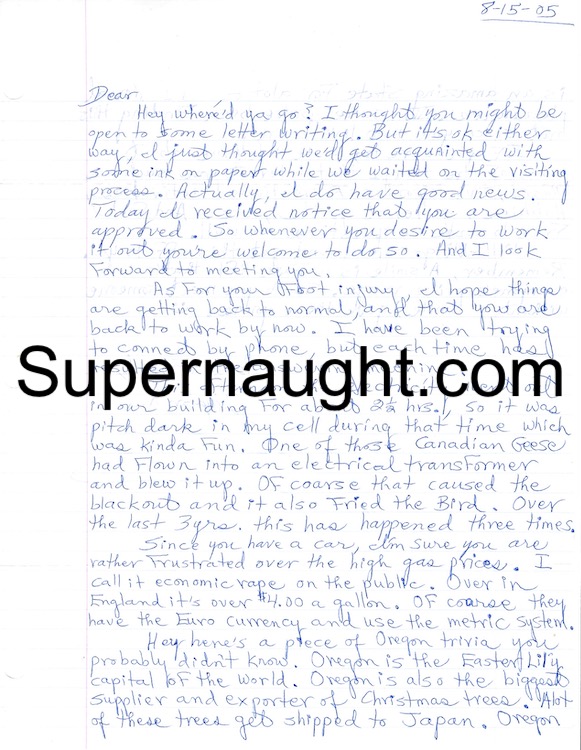 8-15-05
Dear
Hey where'd ya go? I thought you might be
open to some letter writing. But it's ok either
way, I just thought we'd get acquainted with
some ink on paper while we waited on the visiting
process. Actually, I do have good news.
Today I received notice that you are
approved. So whenever you desire to work
it out you're welcome to do so. And I look
Forward to meeting you.
As For your Foot injury, I hope things
are getting back to normal, and that you are
back to work by now. I have been trying
to connect by phone, but each time has
Supernaught.com
in our building For about 2½ hrs.!, so it was
pitch dark in my cell during that time which
was kinda Fun. One of those Canadian Geese
had Flown into an electrical transformer
and blew it up. OF coarse that caused the
blackout and it also Fried the Bird. Over
the last 3yrs. this has happened three times.
Since you have a car, I'm sure you are
rather Frustrated over the high gas prices. I
call it economic rape on the public. Over in
England it's over $4.00 a gallon. OF coarse they
have the Euro currency and use the metric system.
Hey here's a piece of Oregon trivia you
probably didn't know. Oregon is the Easter Lily
capital of the world. Oregon is also the biggest
supplier and exporter of Christmas trees. Alot
of these trees get shipped to Japan. Oregon